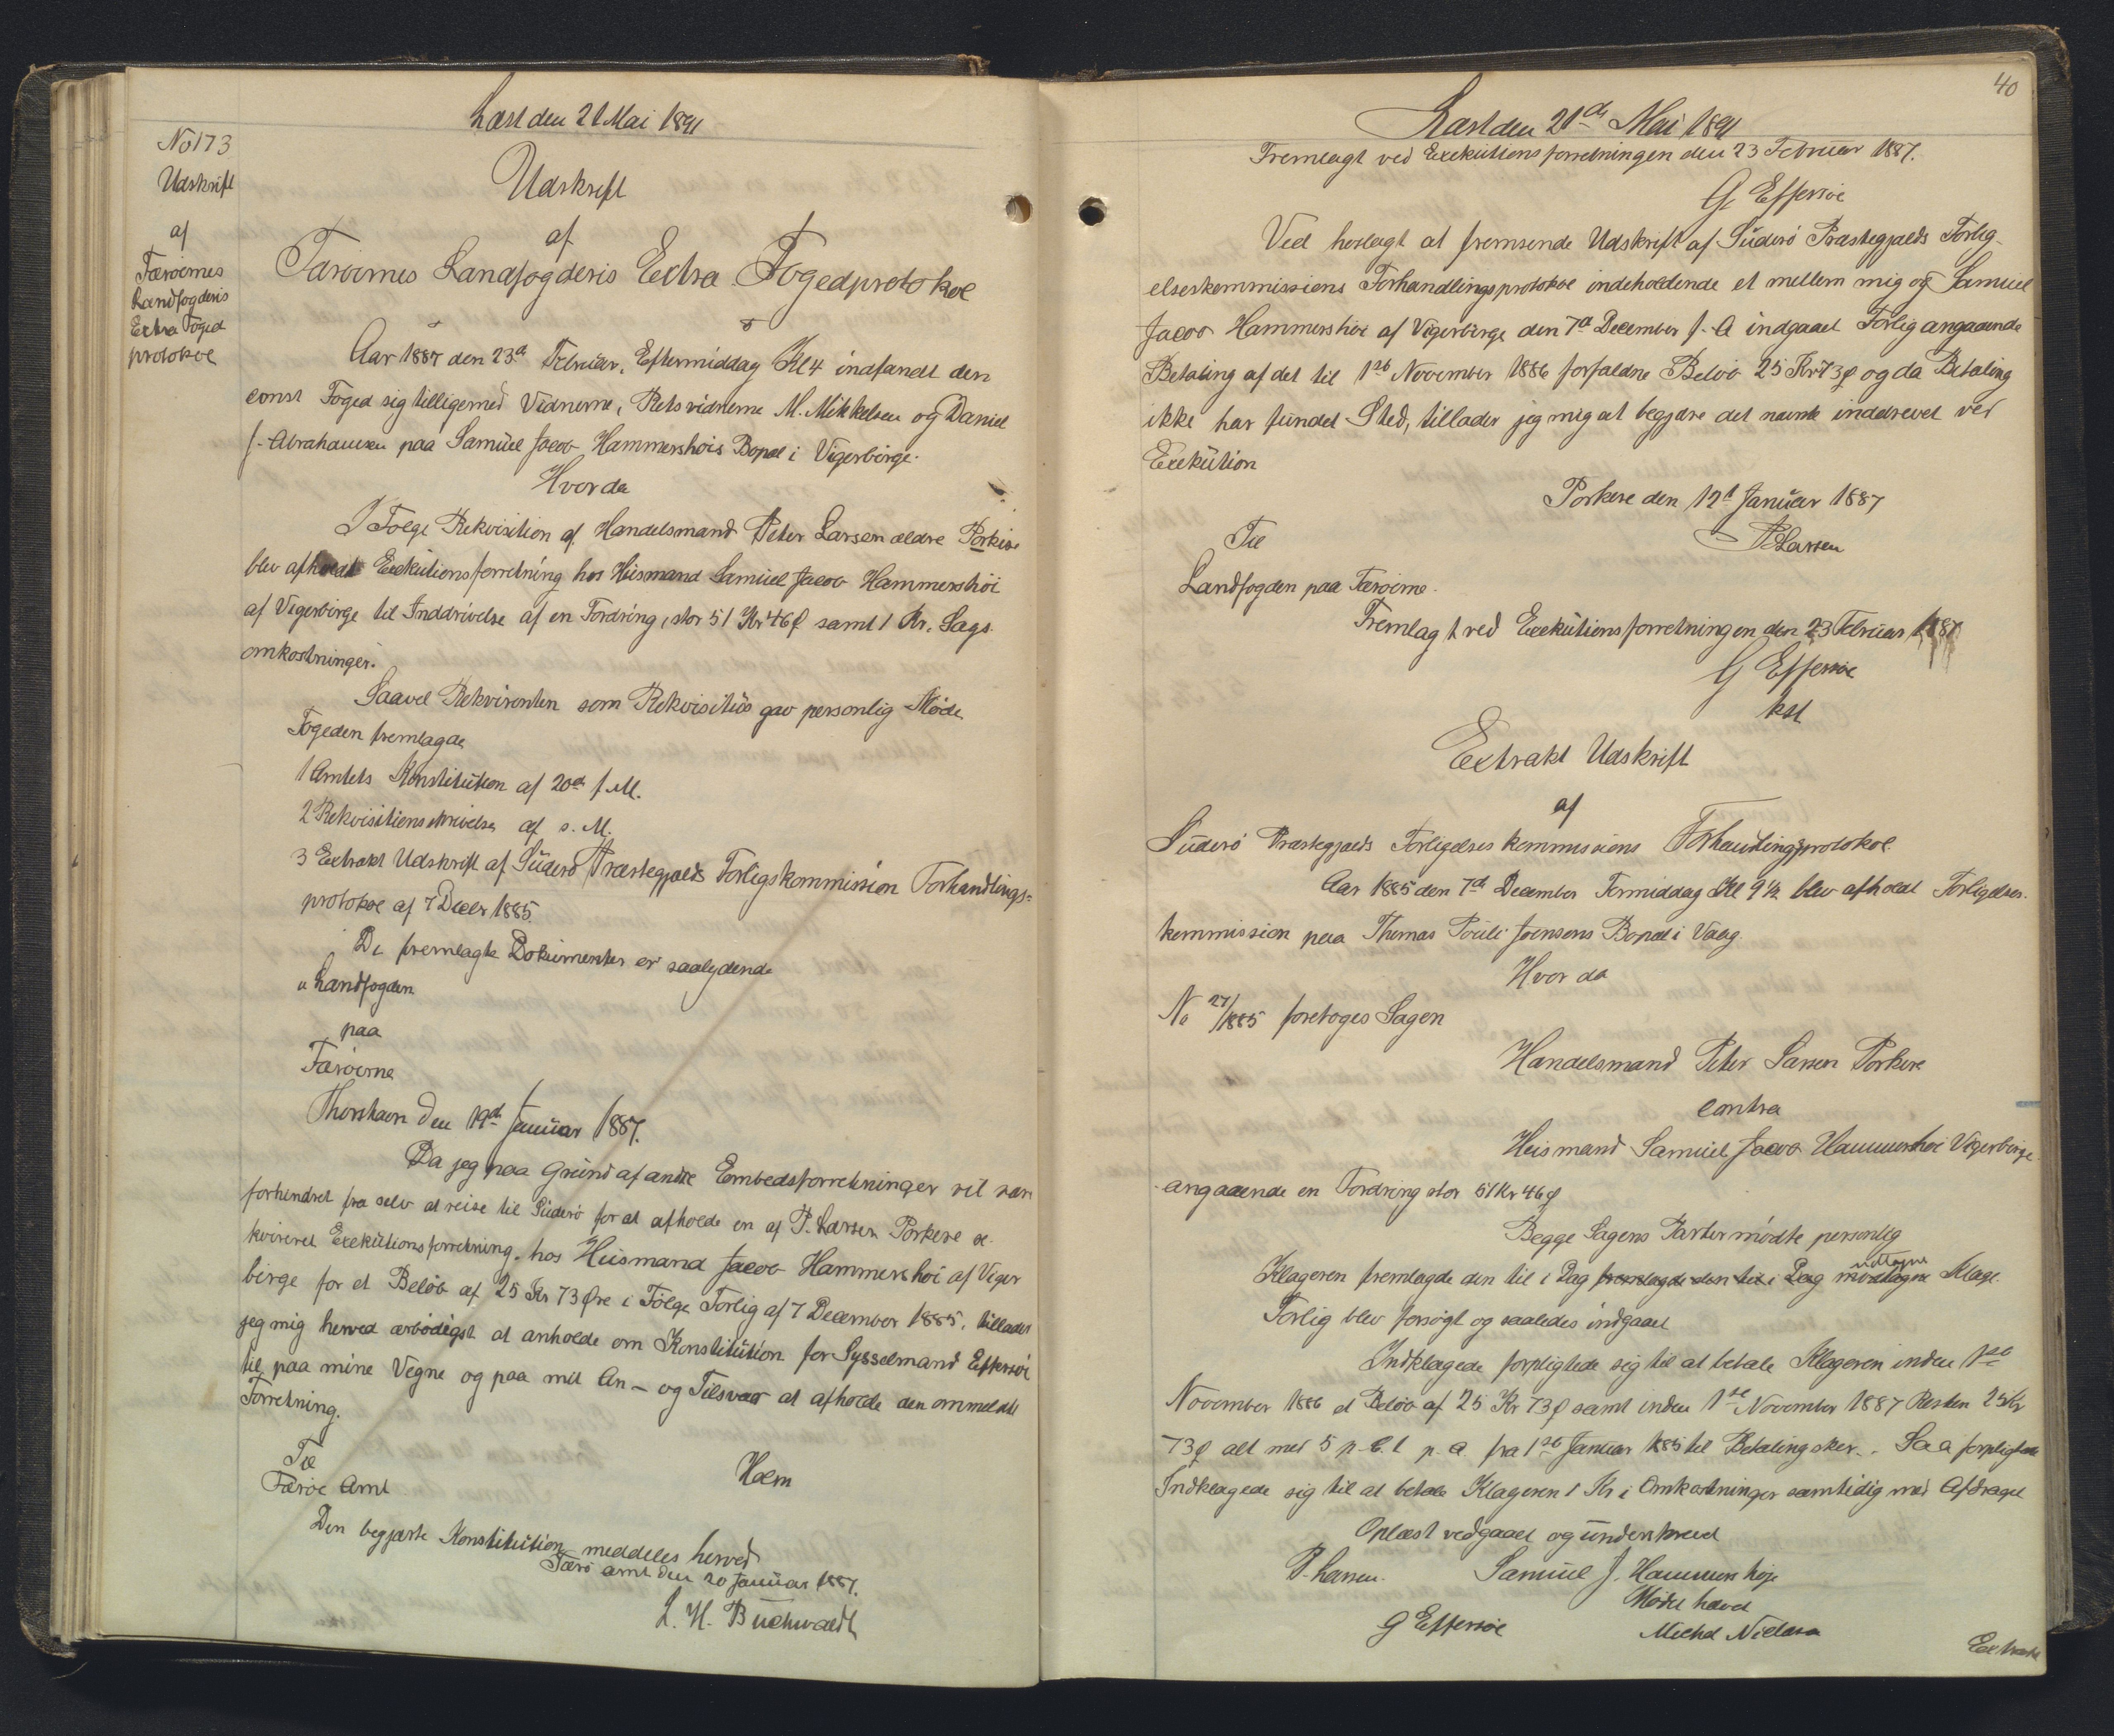 Læst den 21 Mai 1891
No 173
Udskrift
af
Færøernes
Landfogderis
Extra Foged
protokol
Udskrift
af
Færøernes Landfogderis Extra Fogedprotokol
Aar 1887 den 23d Februar, Eftermiddag Kl 4 indfandt den
const Foged sig tilligemed Vidnerne, Retsvidnerne M. Mikkelsen og Daniel
J. Abrahamsen paa Samuel Jacob Hammershøis Bopæl i Vigerbirge.
Hvor da
I Følge Rekvisition af Handelsmand Peter Larsen ældre Porkere
blev afholdt Exekutionsforretning hos Huismand Samuel Jacob Hammershøi
af Vigerbirge til Inddrivelse af en Fordring, stor 51 Kr 46 ø samt 1 Kr. Sags
omkostninger.
Saavel Rekvirenten som Rekvisitus gav personlig Møde
Fogeden fremlagde
1 Amtets Konstitution af 20de f. M.
2 Rekvisitionsskrivelse af s. M.
3 Extrakt Udskrift af Suderø Præstegjælds Forligskommission Forhandlings-
protokol af 7 Decbr 1885.
De fremlagte Dokumenter er saalydende
Landfogden
paa
Færøerne
Thorshavn den 19de Januar 1887.
Da jeg paa Grund af andre Embedsforretninger vil være
forhindret fra selv at reise til Suderø for at afholde en af P. Larsen Porkere re-
kvireret Exekutionsforretning hos Huismand Jacob Hammershøi af Viger
birge for et Beløb af 25 Kr 73 Øre i Følge Forlig af 7 December 1885, tillader
jeg mig herved ærbødigst at anholde om Konstitution for Sysselmand Effersøe
til paa mine Vegne og paa mit An- og Tilsvar at afholde den ommeldte
Forretning.
Til
Færøe Amt
Holm
Den begjærte Konstitution meddeles herved
Færø amt den 20 Januar 1887.
L. H. Buchwaldt
40
Læst den 21de Mai 1891
Fremlagt ved Exekutionsforretningen den 23 Februar 1887.
G Effersøe
Ved hoslagt at fremsende Udskrift af Suderø Præstegjælds Forlig-
elseskommissions Forhandlingsprotokol indeholdende et mellem mig og Samuel
Jacob Hammershøi af Vigerbirge den 7de December f. A indgaaet Forlig angaaende
Betaling af det til 1ste November 1886 forfaldne Beløb 25 Kr 73 ø og da Betaling
ikke har fundet Sted, tillader jeg mig at begjære det nævnte inddrevet ved
Exekution
Porkere den 12t Januar 1887
P Larsen
Til
Landfogden paa Færøerne.
Fremlagt ved Exekutionsforretningen den 23 Februar 1887
G Effersøe
kst
Extrakt Udskrift
af
Suderø Præstegjælds Forligelses kommissions Forhandlingsprotokol.
Aar 1885 den 7de December Formiddag Kl 9 1/2 blev afholdt Forligelses-
kommission paa Thomas Pouli Joensens Bopæl i Vaag.
Hvor da
No 27/1885 foretoges Sagen
Handelsmand Peter Larsen Porkere
contra
Huismand Samuel Jacob Hammershøi Vigerbirge
angaaende en Fordring stor 51 Kr 46 ø
Begge Sagens Parter mødte personlig
Klageren fremlagde den til i Dag fremlagde den til i Dag modtagne udtagne Klage.
Forlig blev forsøgt og saaledes indgaaet
Indklagede forpligtede sig til at betale Klageren inden 1ste
November 1886 et Beløb af 25 Kr 73 ø samt inden 1ste November 1887 Resten 25 Kr
73 ø alt med 5 p. C. t p. a. fra 1ste Januar 1885 til Betaling sker. Saa forpligtede
Indklagede sig til at betale Klageren 1 Kr i Omkostninger samtidig med Afdraget
Oplæst vedgaaet og underskrevet
P. Larsen. Samuel J. Hammershøj
Mødet hævet
G Effersøe Michel Nielsen
Extrakt